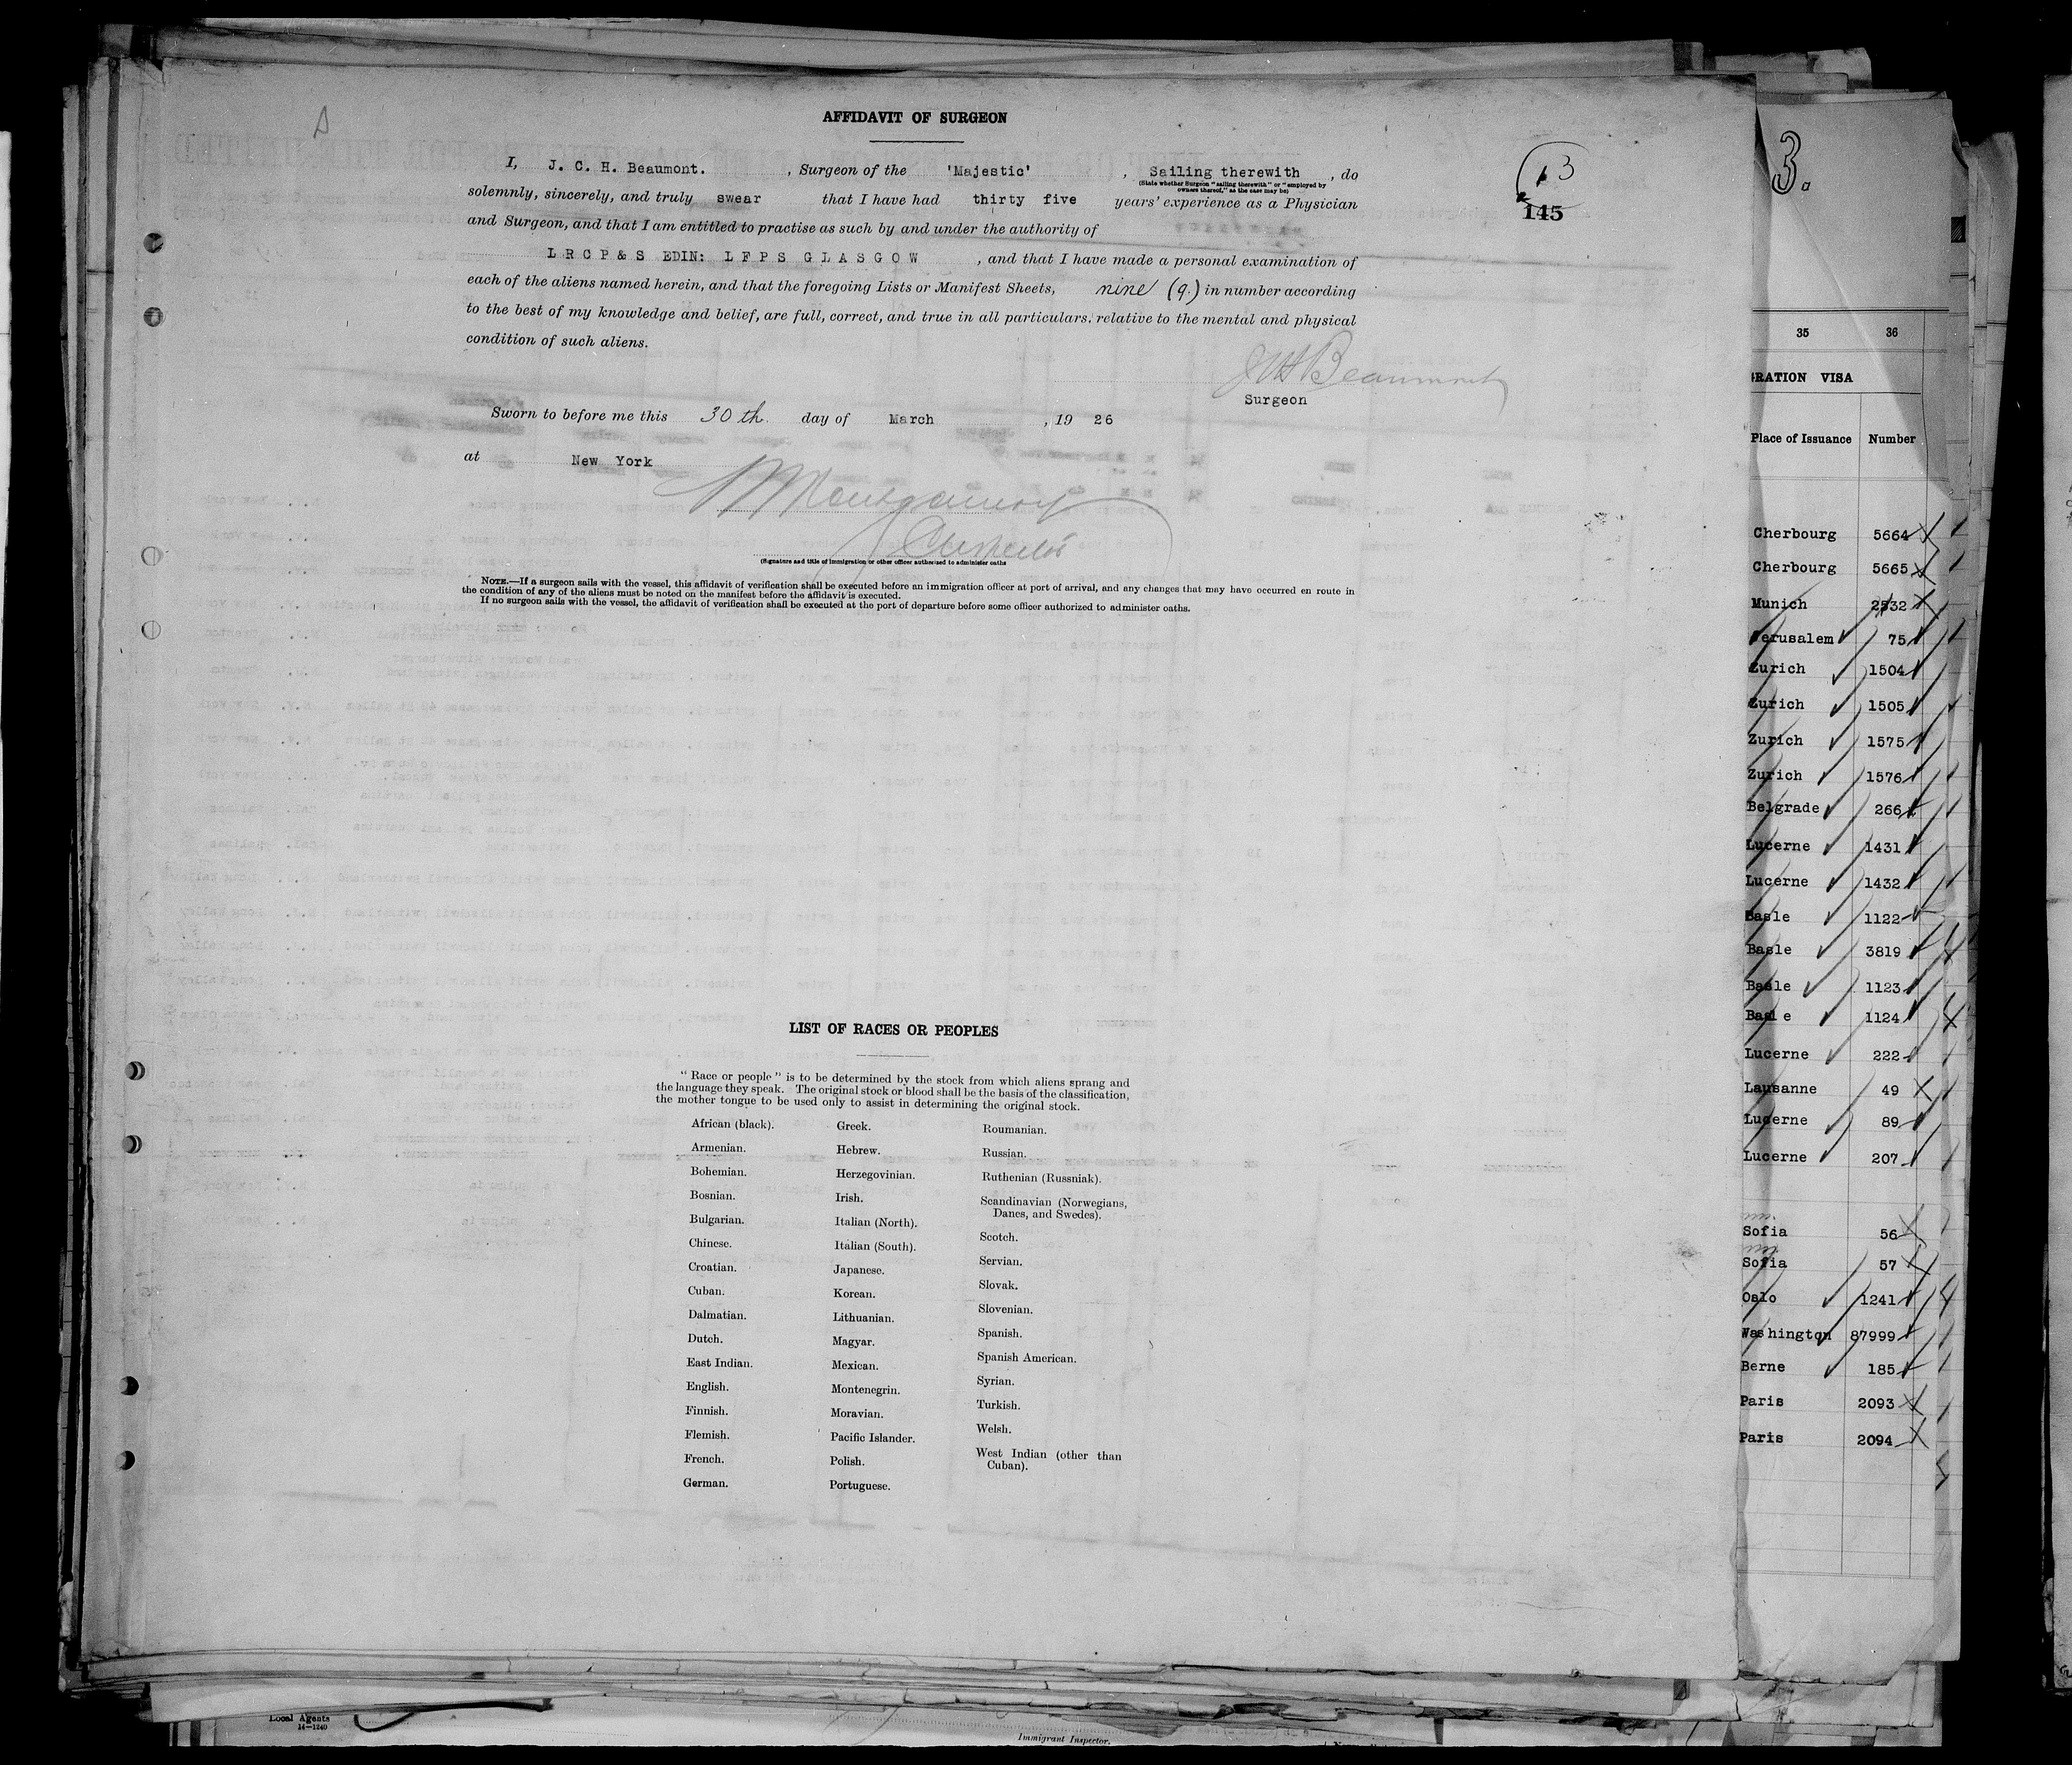 AFFIDAVIT OF SURGEON
I, J. C. H. Beaumont. , Surgeon of the 'Majestic' , Sailing therewith , do
(State whether Surgeon "sailing therewith" or "employed by
owners thereof," as the case may be)
solemnly, sincerely, and truly swear that I have had thirty five years' experience as a Physician
and Surgeon, and that I am entitled to practise as such by and under the authority of
L R C P & S EDIN: L F P S G L A S G O W , and that I have made a personal examination of
each of the aliens named herein, and that the foregoing Lists or Manifest Sheets, nine (9.) in number according
to the best of my knowledge and belief, are full, correct, and true in all particulars, relative to the mental and physical
condition of such aliens.
JCHBeaumont
Surgeon
Sworn to before me this 30th. day of March , 19 26
at New York
Montgomery
(Signature and title of immigration or other officer authorized to administer oaths
NOTE.—If a surgeon sails with the vessel, this affidavit of verification shall be executed before an immigration officer at port of arrival, and any changes that may have occurred en route in
the condition of any of the aliens must be noted on the manifest before the affidavit is executed.
If no surgeon sails with the vessel, the affidavit of verification shall be executed at the port of departure before some officer authorized to administer oaths.
13
145
LIST OF RACES OR PEOPLES
"Race or people" is to be determined by the stock from which aliens sprang and
the language they speak. The original stock or blood shall be the basis of the classification,
the mother tongue to be used only to assist in determining the original stock.
African (black).
Armenian.
Bohemian.
Bosnian.
Bulgarian.
Chinese.
Croatian.
Cuban.
Dalmatian.
Dutch.
East Indian.
English.
Finnish.
Flemish.
French.
German.
Greek.
Hebrew.
Herzegovinian.
Irish.
Italian (North).
Italian (South).
Japanese.
Korean.
Lithuanian.
Magyar.
Mexican.
Montenegrin.
Moravian.
Pacific Islander.
Polish.
Portuguese.
Roumanian.
Russian.
Ruthenian (Russniak).
Scandinavian (Norwegians,
Danes, and Swedes).
Scotch.
Servian.
Slovak.
Slovenian.
Spanish.
Spanish American.
Syrian.
Turkish.
Welsh.
West Indian (other than
Cuban).
3.
35 36
GRATION VISA
Place of Issuance Number
Cherbourg 5664
Cherbourg 5665
Munich 2532
Jerusalem 75
Zurich 1504
Zurich 1505
Zurich 1575
Zurich 1576
Belgrade 266
Lucerne 1431
Lucerne 1432
Basle 1122
Basle 3819
Basle 1123
Basle 1124
Lucerne 222
Lausanne 49
Lucerne 89
Lucerne 207
Sofia 56
Sofia 57
Oslo 1241
Washington 87999
Berne 185
Paris 2093
Paris 2094
Local Agents
14—1240
Immigrant Inspector.